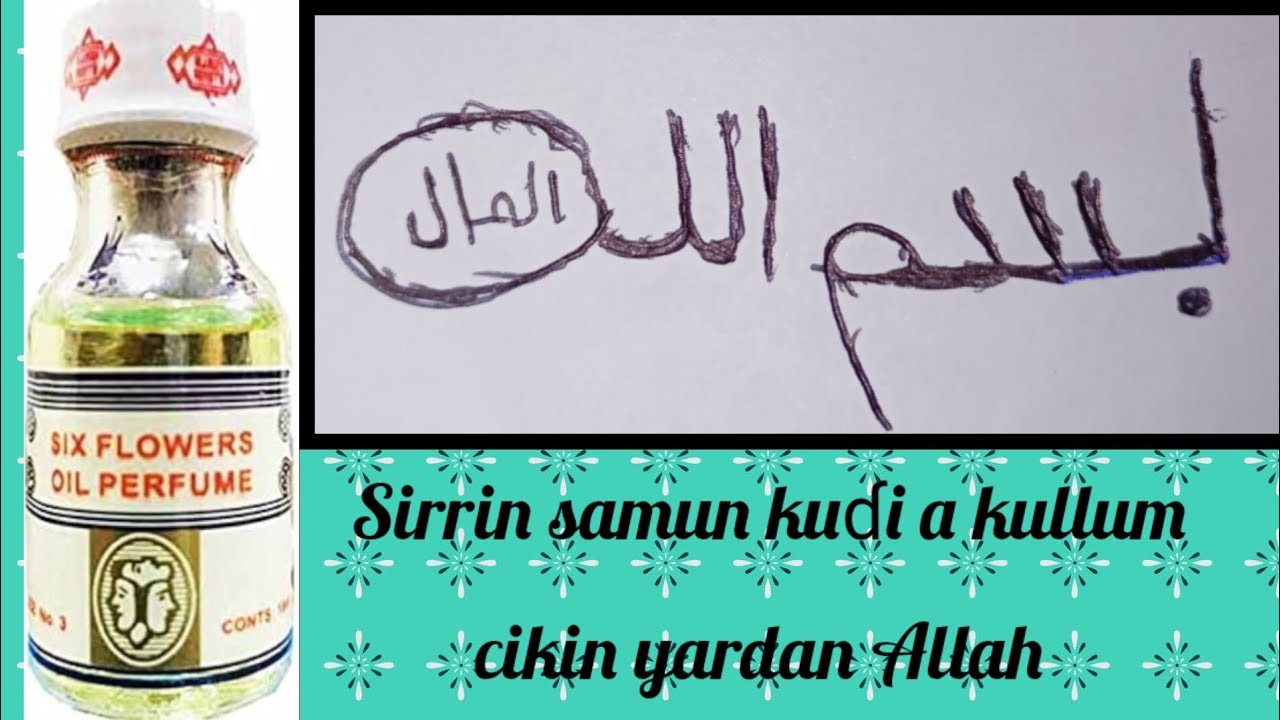 SIX FLOWERS
OIL PERFUME
No 3
CONTS
بسم الله
المال
Sirrin samun kuɗi a kullum
cikin yardan Allah